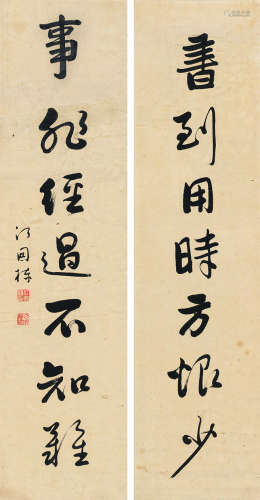 書到用時方恨少
事非經過不知難
汪國棟